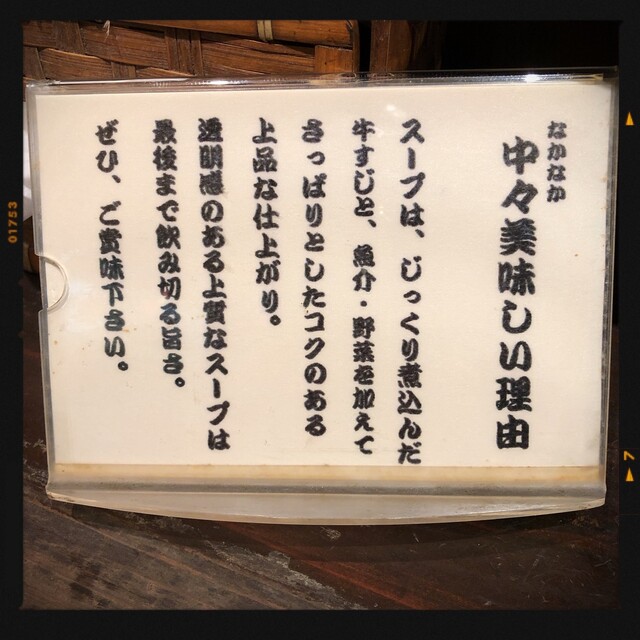 なかなか
中々美味しい理由
スープは、じっくり煮込んだ
牛すじと、魚介・野菜を加えて
さっぱりとしたコクのある
上品な仕上がり。
透明感のある上質なスープは
最後まで飲み切る旨さ。
ぜひ、ご賞味下さい。
01753
7